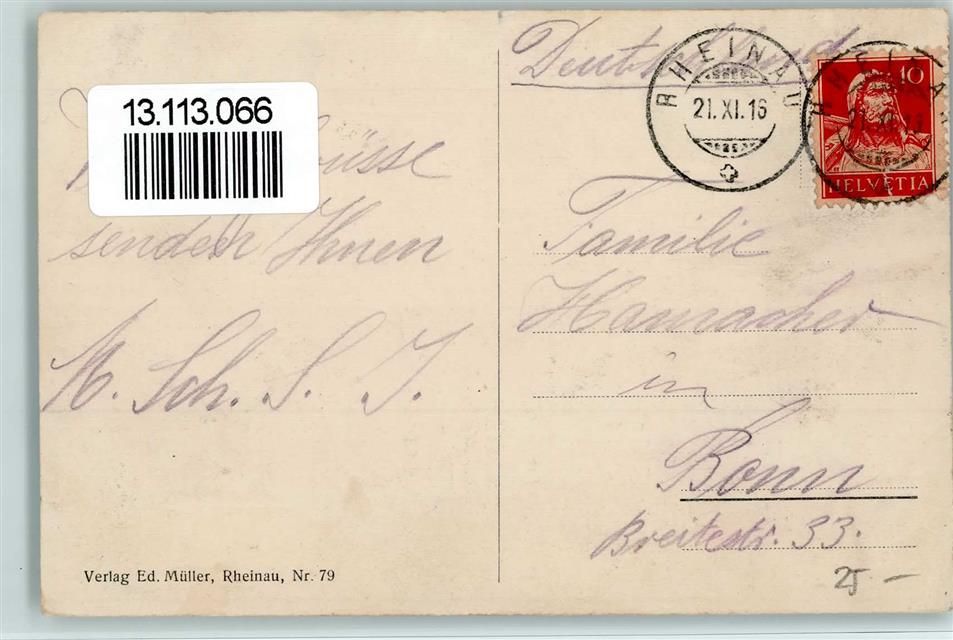 13.113.066
Grüsse
senden Ihnen
M. Sch. S. J.
Verlag Ed. Müller, Rheinau, Nr. 79
Deutschland
RHEINAU
21. XI. 16
RHEINAU
10
HELVETIA
Familie
Hamacher
in
Bonn
Breitestr. 33.
25 –